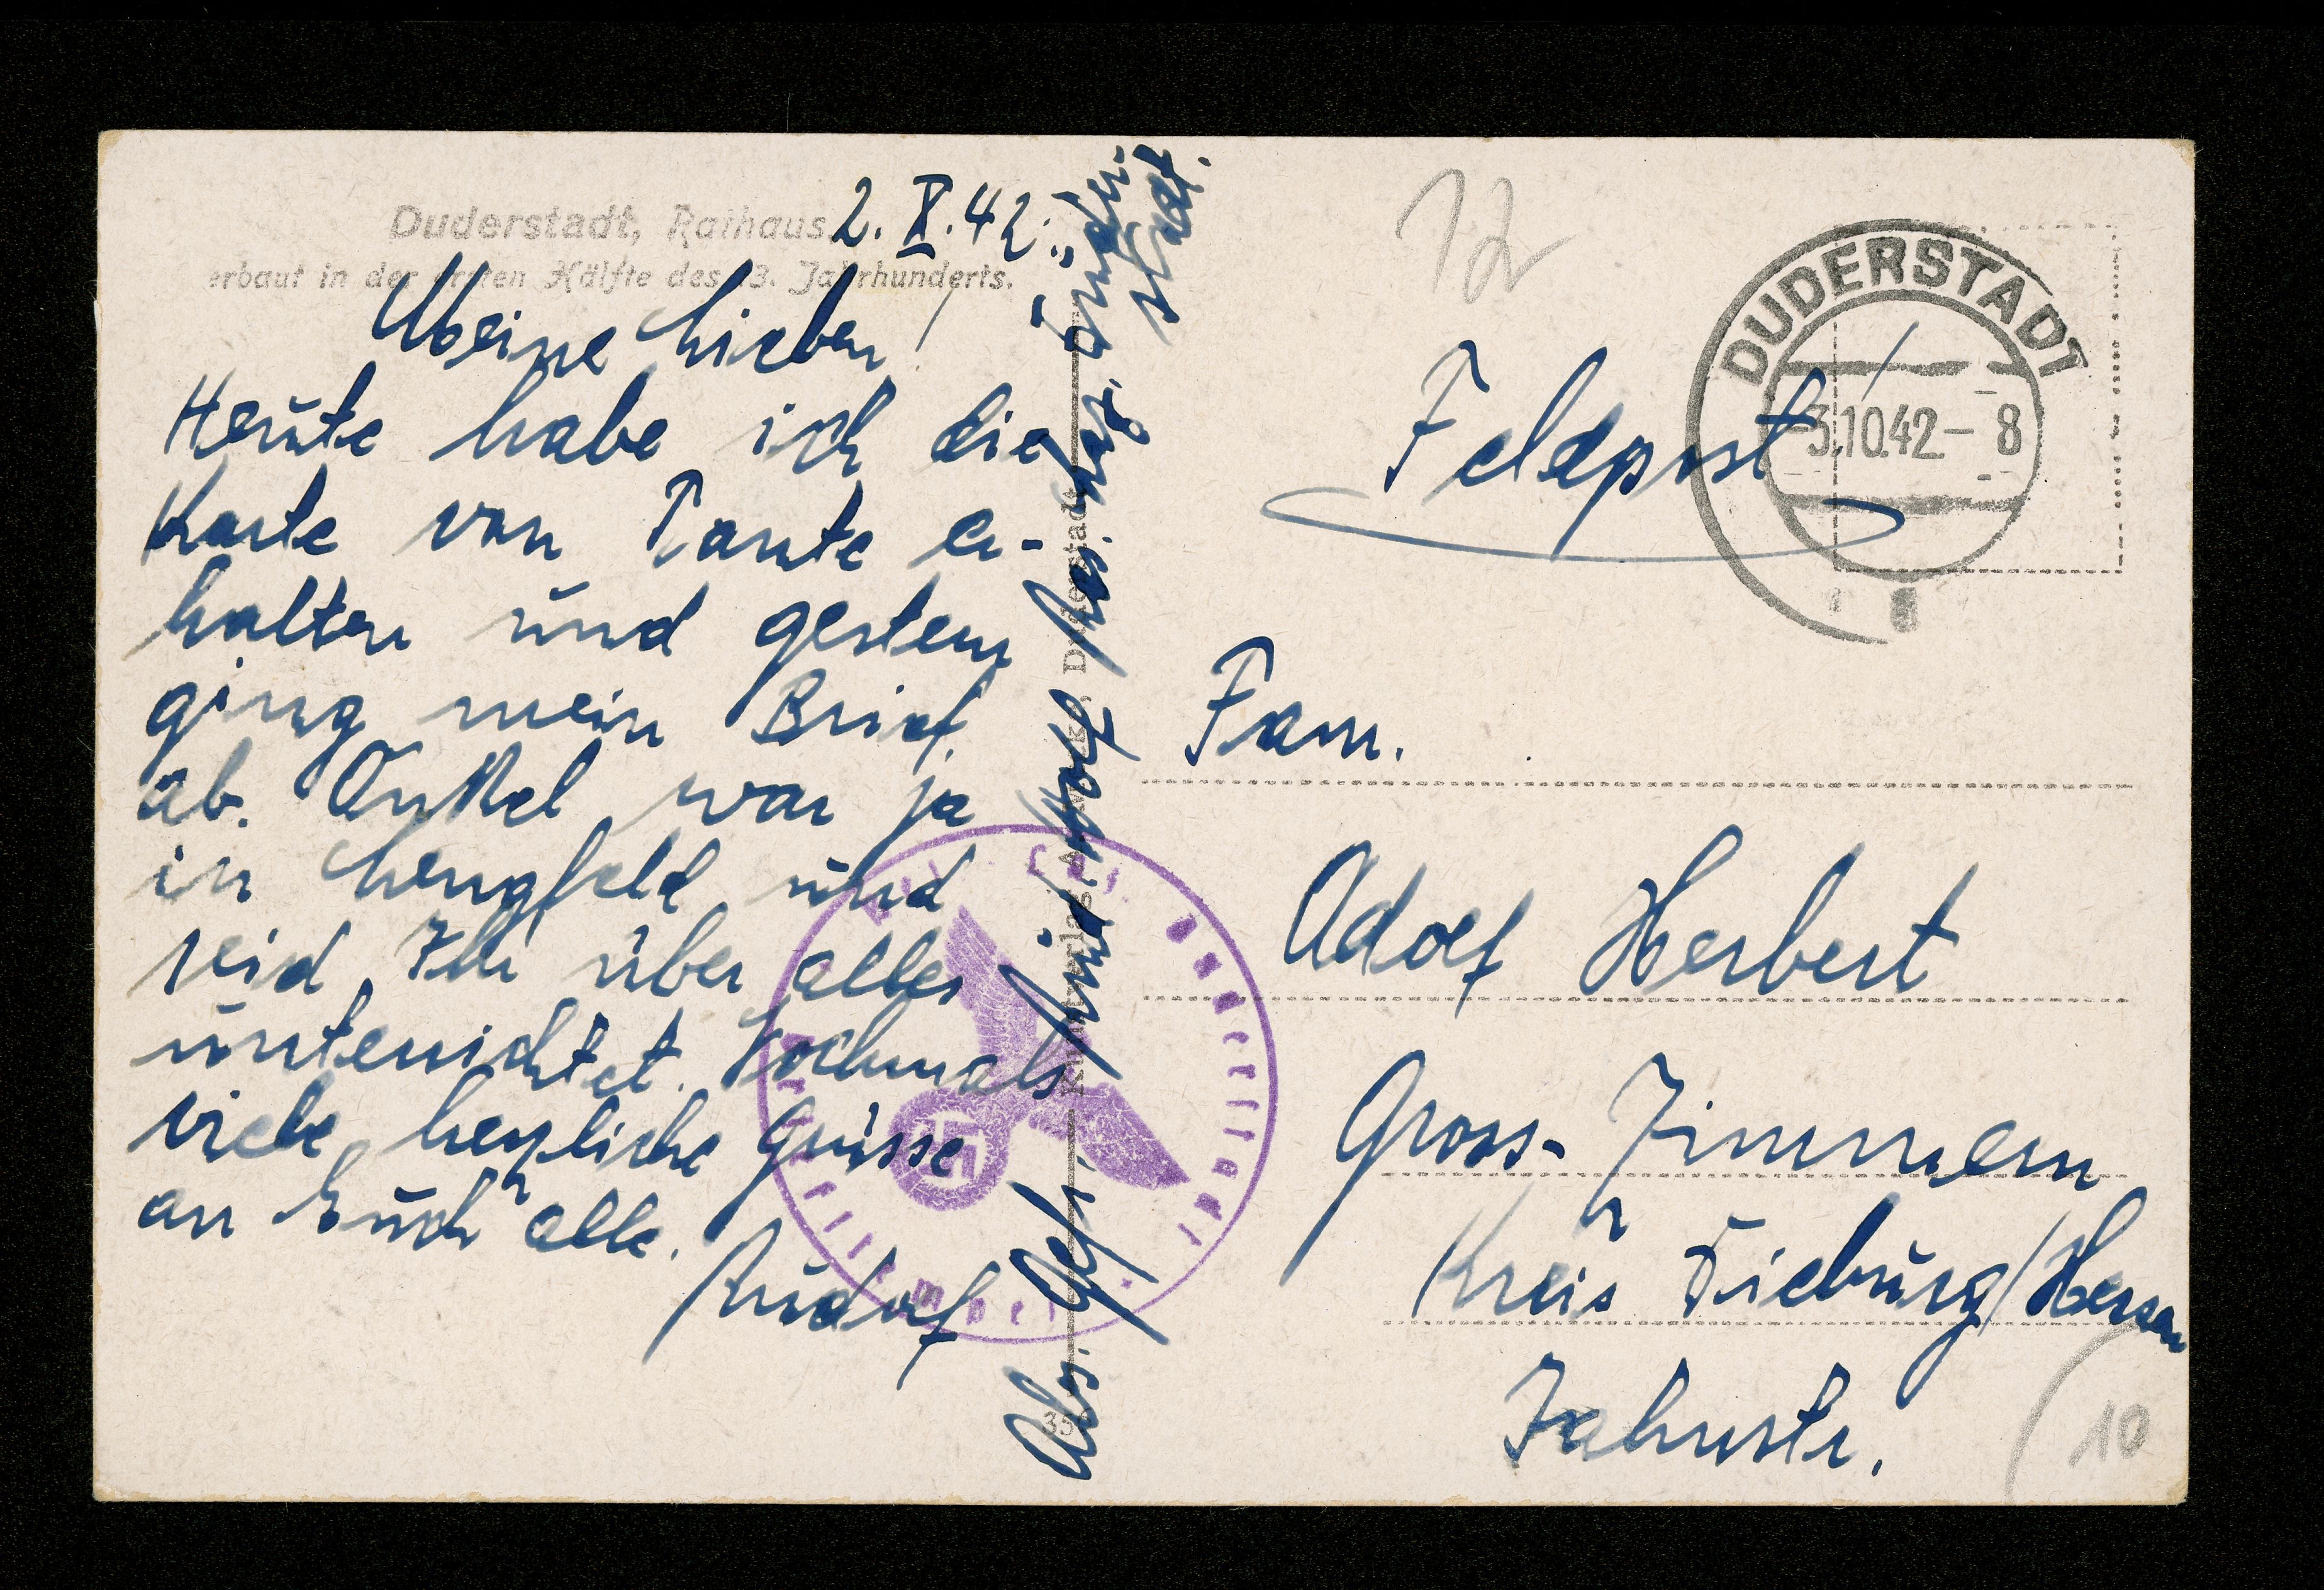 Duderstadt, Rathaus
erbaut in der ersten Hälfte des 13. Jahrhunderts.
2. X. 42.
Meine Lieben!
Heute habe ich die
Karte von Tante er-
halten und gestern
ging mein Brief
ab. Onkel war ja
in Lengfeld und
seid Ihr über alles
unterrichtet. Nochmals
viele herzliche Grüsse
an Euch alle.
Rudolf
Abs. Gefr. Rud. Wolf, Res. Laz. Duder-
stadt.
Duderstadt
12
DUDERSTADT
3.10.42 - 8
Feldpost
Fam.
Adolf Herbert
Gross-Zimmern
Kreis Dieburg/Hessen
Jahnstr.
10